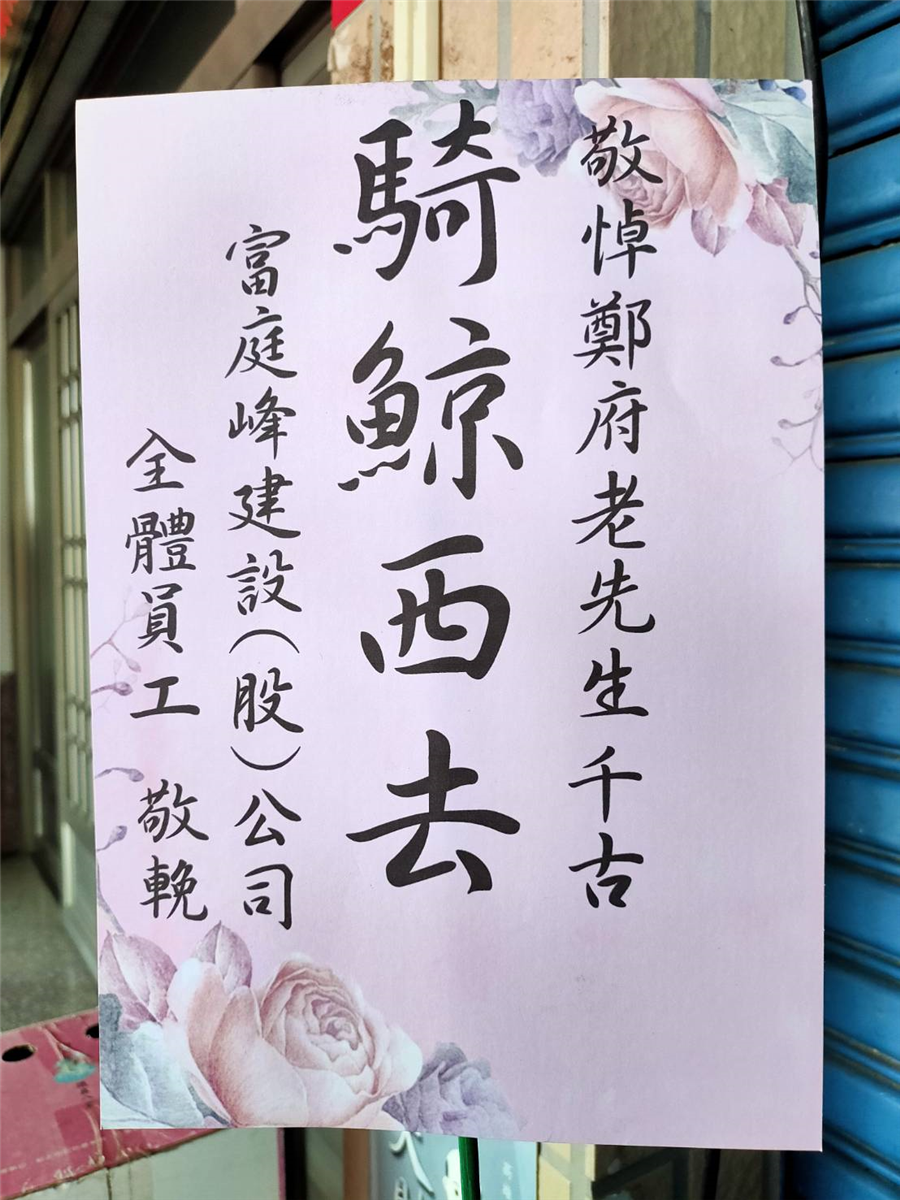 敬悼鄭府老先生千古
騎鯨西去
富庭峰建設(股)公司
全體員工 敬輓